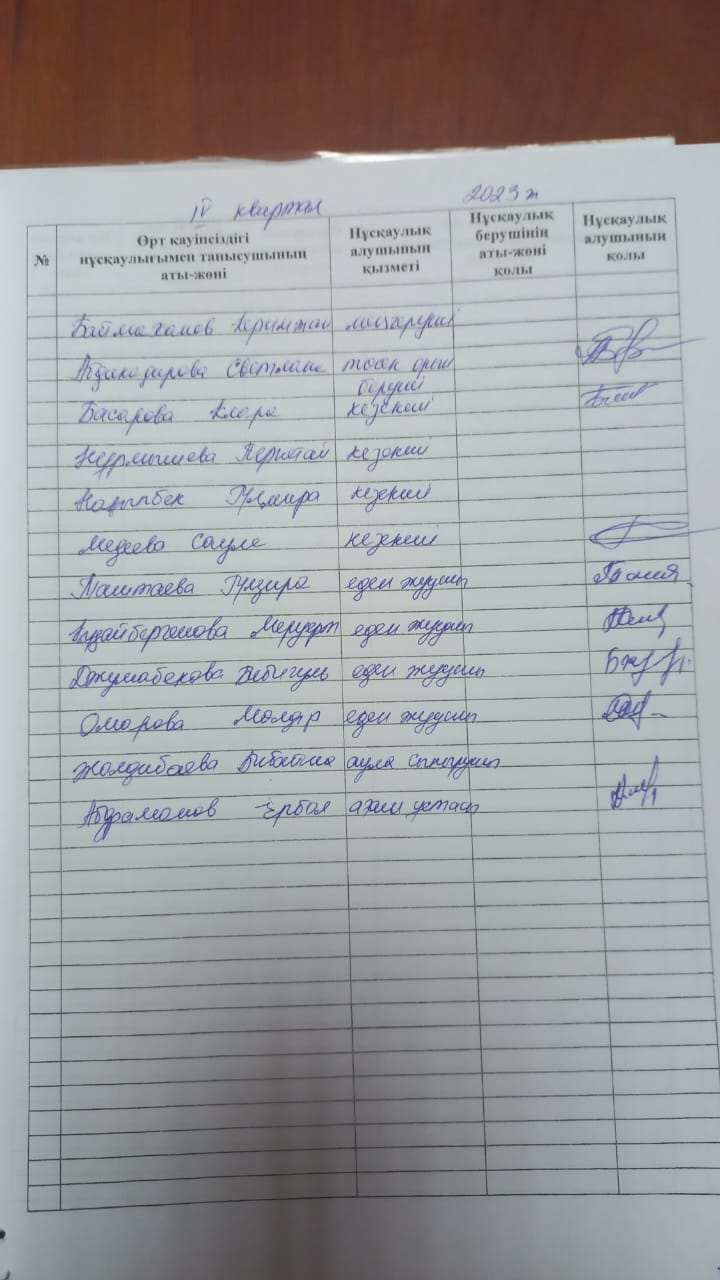 IV квартал 2023 ж
№ Өрт қауіпсіздігі нұсқаулығымен танысушының аты-жөні Нұсқаулық алушының қызметі Нұсқаулық берушінің аты-жөні қолы Нұсқаулық алушының қолы
Баймаханов Керимжан меңгеруші
Абдикадирова Светлана төсек орын
беруші
Басарова Клара кезекші
Нурмышева Перизат кезекші
Гулмира кезекші
Медеева Сауле кезекші
Паштаева Гулзира еден жуушы
Кудайбергенова Меруерт еден жуушы
Джумабекова Бибигуль еден жуушы
Омарова Молдір еден жуушы
Жолдибаева аула сыпырушы
Абдраманов Ербол ағаш ұстасы